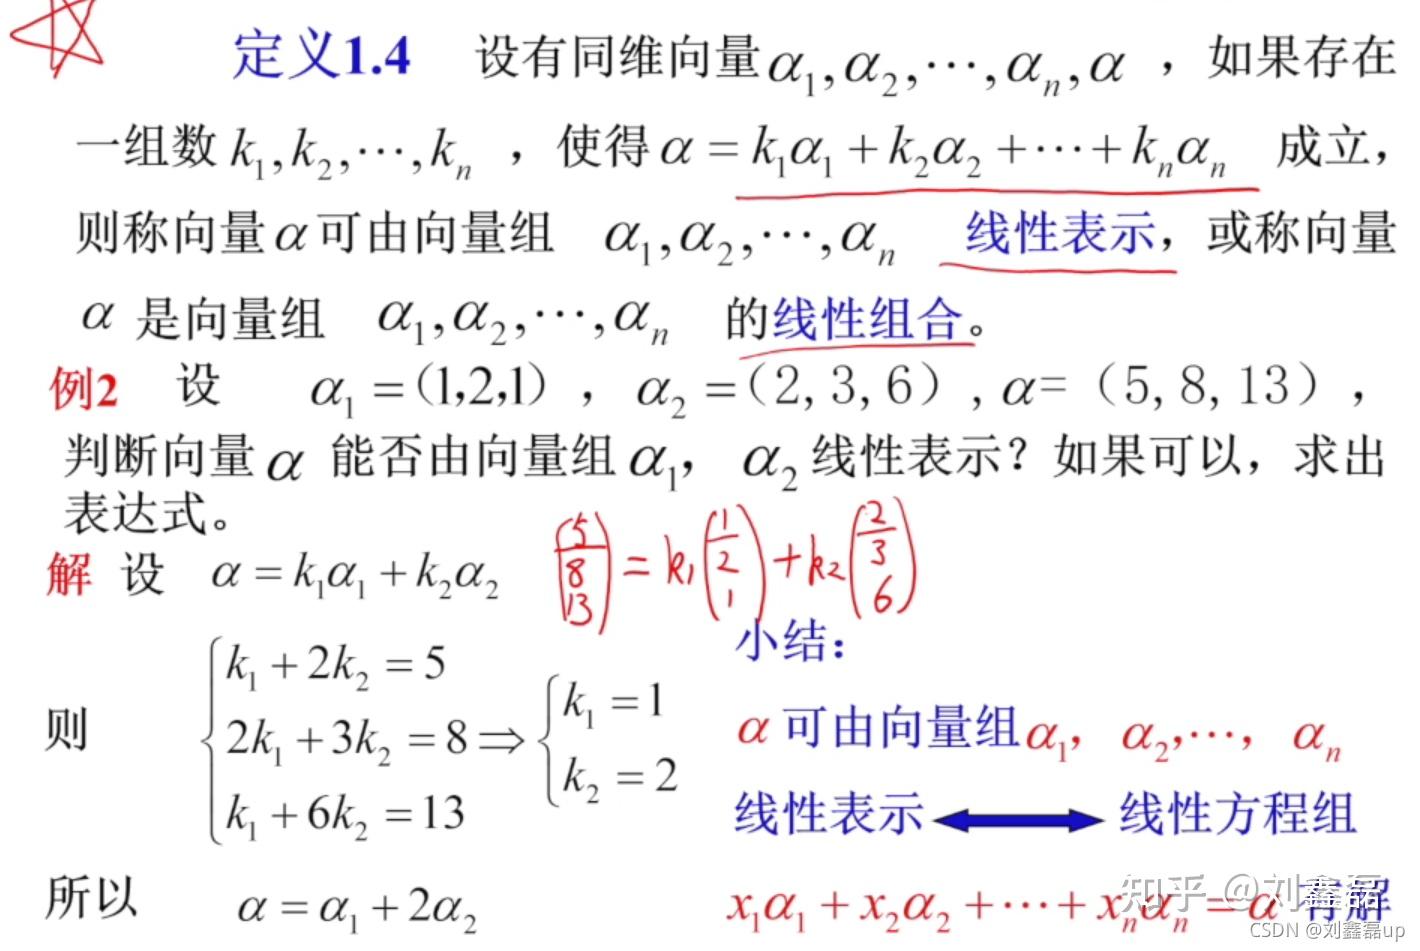 定义1.4 设有同维向量 α₁,α₂,⋯,αₙ,α ，如果存在
一组数 k₁,k₂,⋯,kₙ ，使得 α = k₁α₁ + k₂α₂ + ⋯ + kₙαₙ 成立，
则称向量 α 可由向量组 α₁,α₂,⋯,αₙ 线性表示，或称向量
α 是向量组 α₁,α₂,⋯,αₙ 的线性组合。
例2 设 α₁ =(1,2,1) ，α₂ =(2,3,6) ,α=（5,8,13），
判断向量 α 能否由向量组 α₁， α₂ 线性表示？如果可以，求出
表达式。
解 设 α = k₁α₁ + k₂α₂
(5 8 13) = k₁ (1 2 1) + k₂ (2 3 6)
则
k₁ + 2k₂ = 5
2k₁ + 3k₂ = 8 ⇒
k₁ + 6k₂ = 13
k₁ = 1
k₂ = 2
所以 α = α₁ + 2α₂
小结：
α 可由向量组 α₁， α₂,⋯， αₙ
线性表示 ⟷ 线性方程组
x₁α₁ + x₂α₂ + ⋯ + xₙαₙ = α 有解
知乎 @刘鑫磊
CSDN @刘鑫磊up